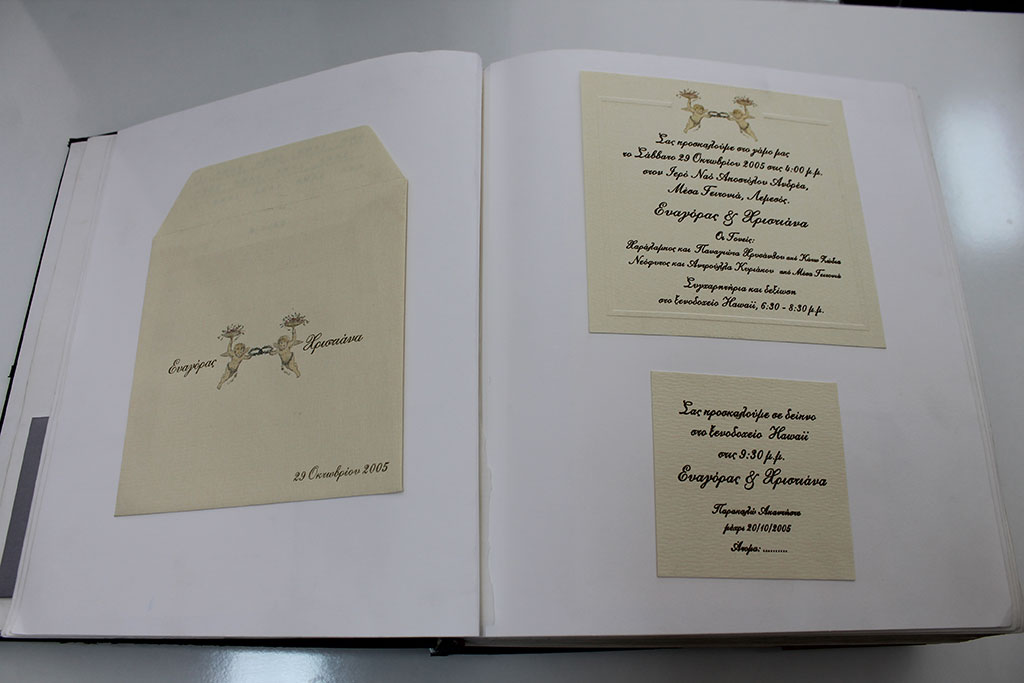 Ευαγόρας Χριστιάνα
29 Οκτωβρίου 2005
Σας προσκαλούμε στο γάμο μας
το Σάββατο 29 Οκτωβρίου 2005 στις 4:00 μ.μ.
στον Ιερό Ναό Αποστόλου Ανδρέα,
Μέσα Γειτονιά, Λεμεσός.
Ευαγόρας & Χριστιάνα
Οι Γονείς:
Χαράλαμπος και Παναγιώτα Χρυσάνθου από Κάτω Ζώδια
Νεόφυτος και Αντρούλλα Κυριάκου από Μέσα Γειτονιά
Συγχαρητήρια και δεξίωση
στο ξενοδοχείο Hawaii, 6:30 - 8:30 μ.μ.
Σας προσκαλούμε σε δείπνο
στο ξενοδοχείο Hawaii
στις 9:30 μ.μ.
Ευαγόρας & Χριστιάνα
Παρακαλώ Απαντήστε
μέχρι 20/10/2005
Άτομα: ..........